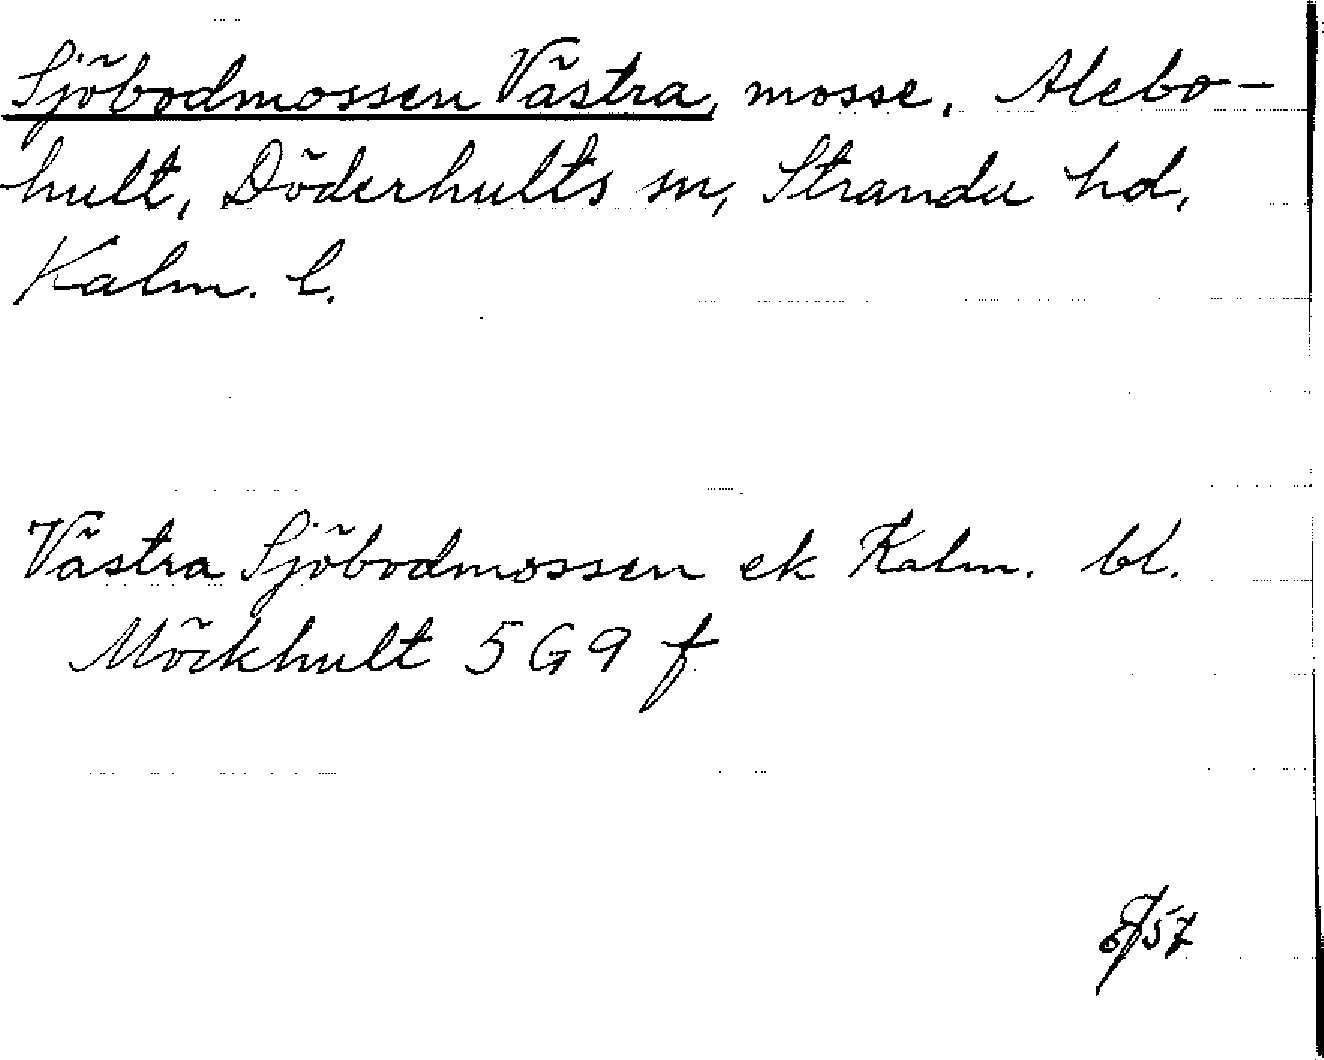 Sjöbodmossen Västra, mosse, Alebo-
hult, Döderhults sn, Stranda hd,
Kalm. l.
Västra Sjöbodmossen ek Kalm. bl.
Möckhult 5 G 9 f
57